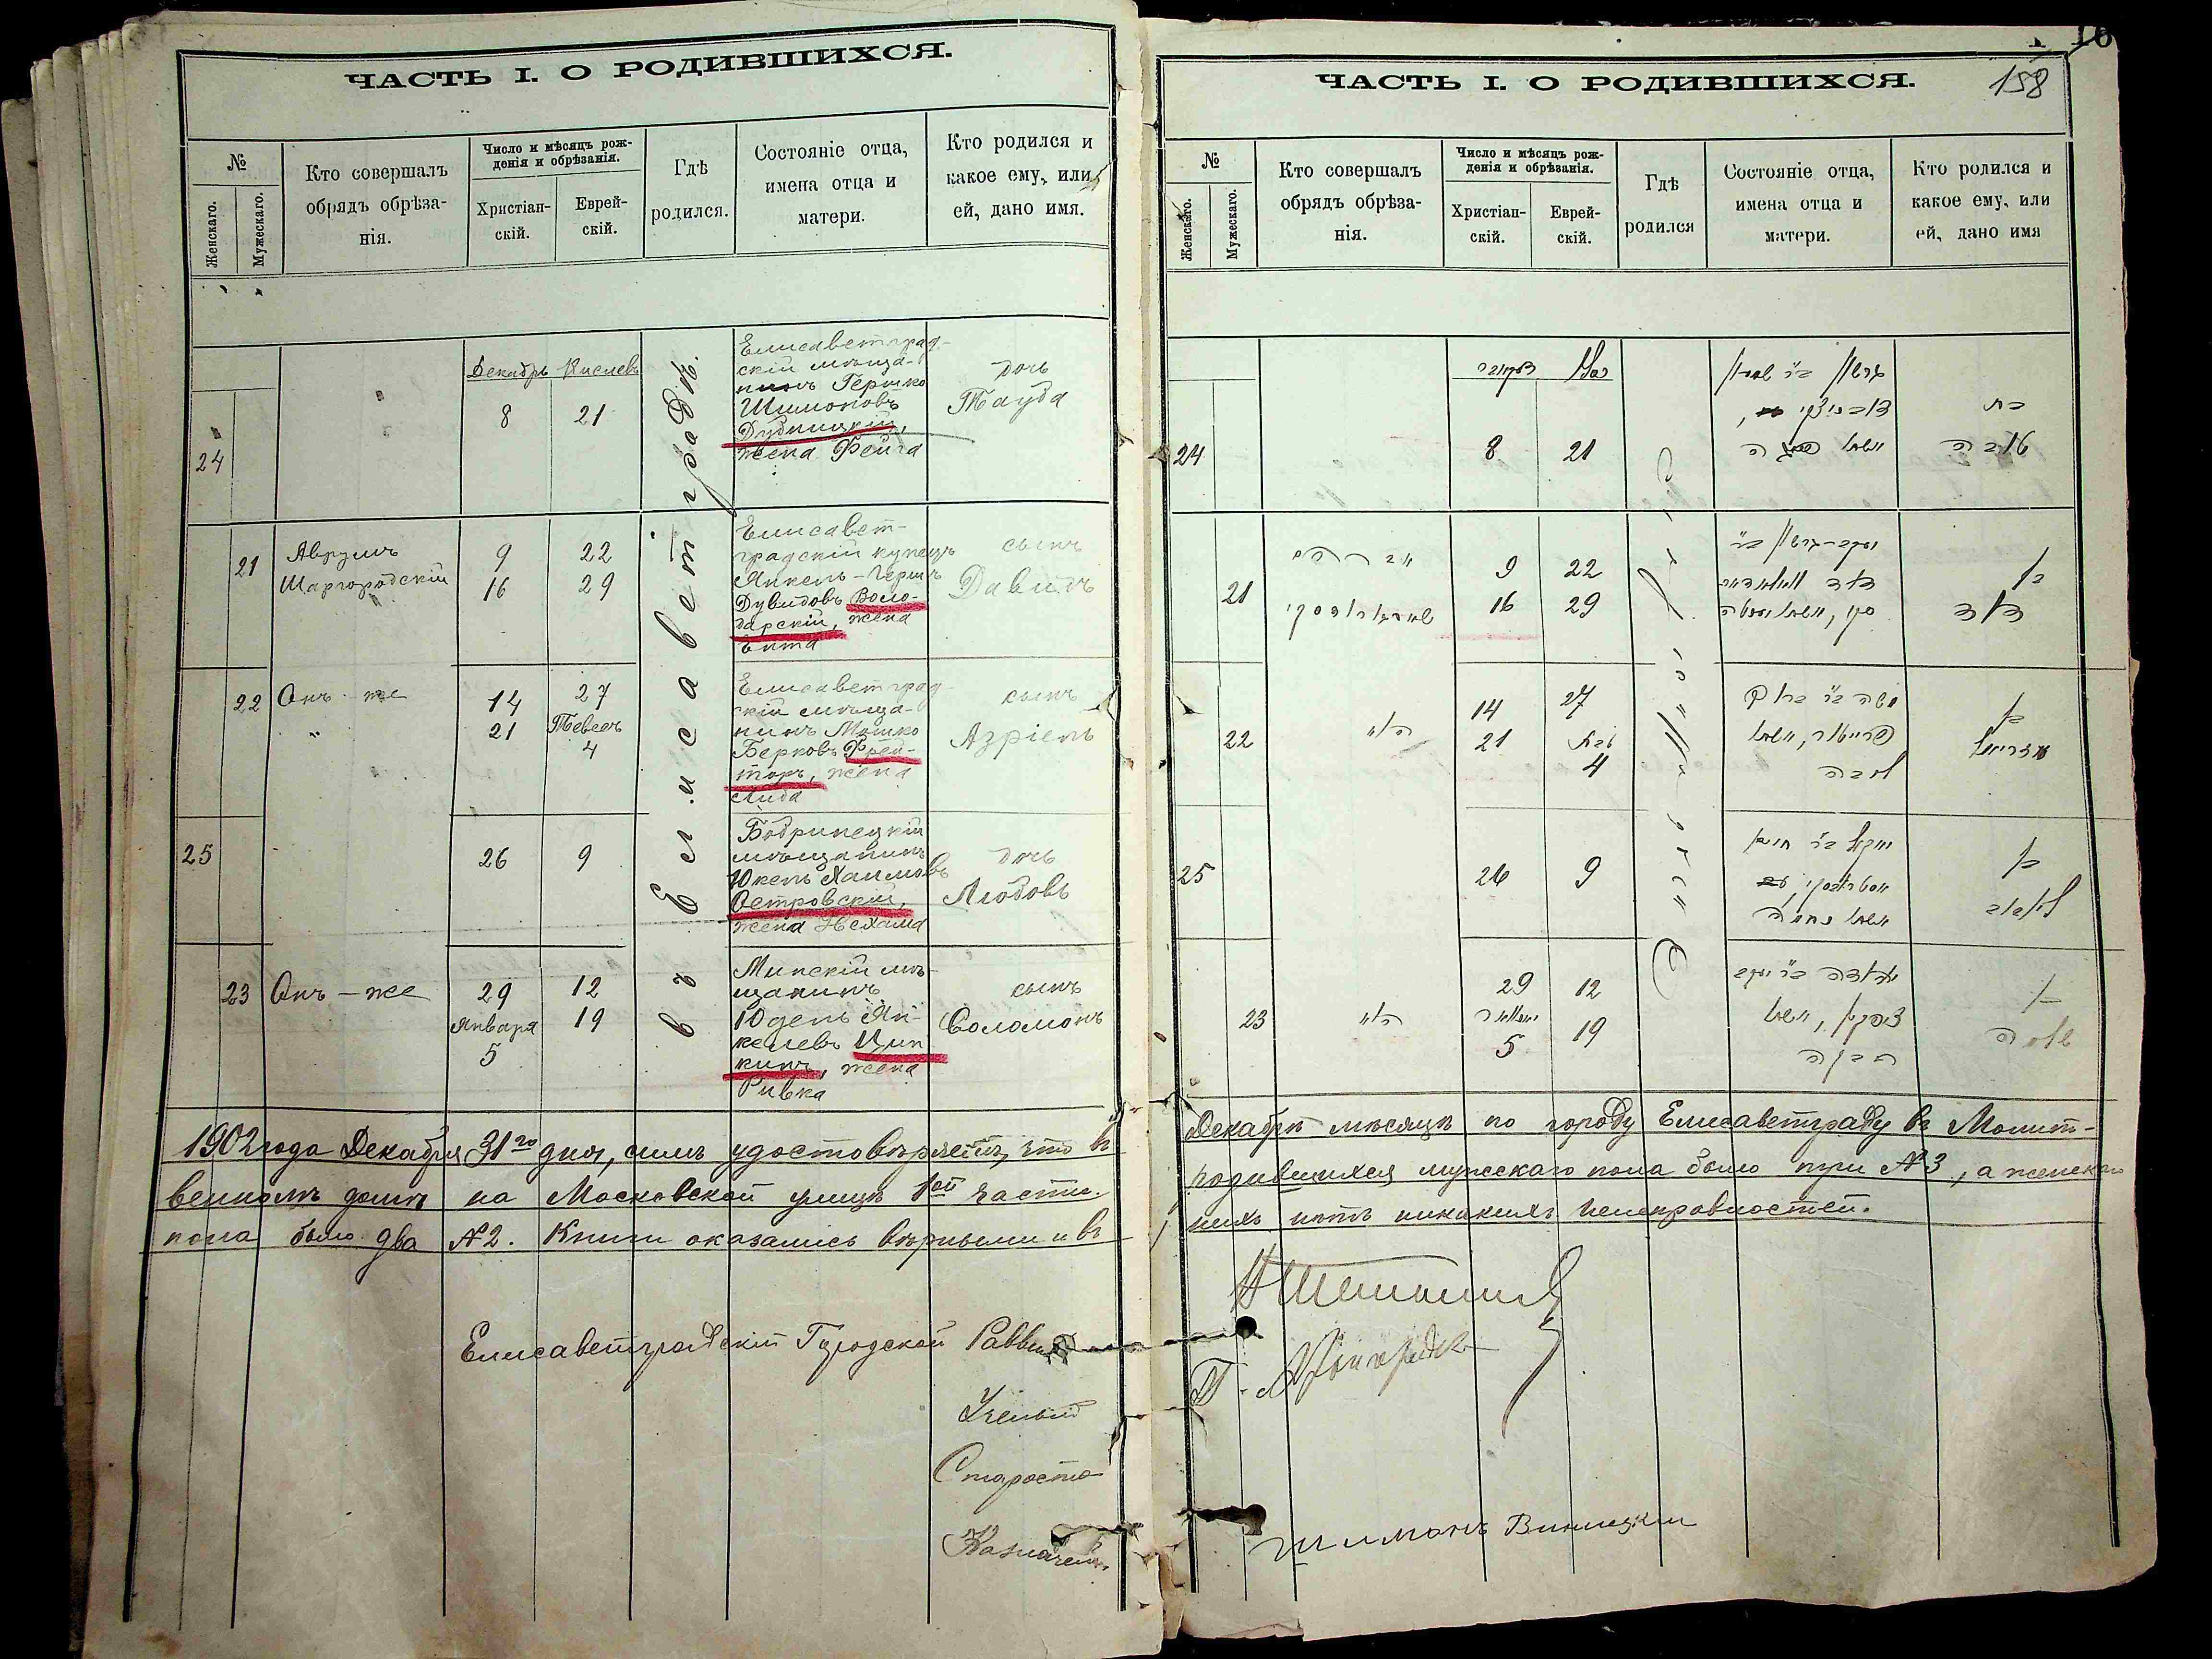 ЧАСТЬ I. О РОДИВШИХСЯ.
№
Женскаго.
Мужескаго.
Кто совершалъ
обрядъ обрѣза-
нія.
Число и мѣсяцъ рож-
денія и обрѣзанія.
Христіан-
скій.
Еврей-
скій.
Гдѣ
родился.
Состояніе отца,
имена отца и
матери.
Кто родился и
какое ему, или
ей, дано имя.
въ Елисаветградѣ.
Декабрь Кислевъ
24
8 21
Елисаветград-
скій мѣща-
нинъ Гершко
Шимоновъ
Дубницкій,
жена Фейга
дочь
Тауба
21
Аврумъ
Шаргородскій
9 22
16 29
Елисавет-
градскій купецъ
Янкель-Гершъ
Дувидовъ Воло-
дарскій, жена
Ента
сынъ
Давидъ
22
Онъ-же
14 27
21 Тевесъ
4
Елисаветград-
скій мѣща-
нинъ Мошко
Берковъ Фрей-
торъ, жена
Люба
сынъ
Азріель
25
26 9
Бобринецкій
мѣщанинъ
Юкель Хаимовъ
Островскій,
жена Нехама
дочь
Любовь
23
Онъ-же
29 12
Января 19
5
Минскій мѣ-
щанинъ
Юдель Ян-
келевъ Цип
кинъ, жена
Ривка
сынъ
Соломонъ
1902 года Декабря 31го дня, симъ удостовѣряетъ, что въ
венномъ домѣ на Московской улицѣ 1ой части.
пола было два №2. Книги оказались вѣрными и въ
Елисаветградскій Городской Раввинъ
Ученый
Староста
Казначей
ЧАСТЬ I. О РОДИВШИХСЯ.
158
№
Женскаго.
Мужескаго.
Кто совершалъ
обрядъ обрѣза-
нія.
Число и мѣсяцъ рож-
денія и обрѣзанія.
Христіан-
скій.
Еврей-
скій.
Гдѣ
родился
Состояніе отца,
имена отца и
матери.
Кто родился и
какое ему, или
ей, дано имя
24
8 21
בת
טובה
21
אברהם
שאראגראדסקי
9 22
16 29
בן
דוד
22
הנ״ל
14 27
21 טבת
4
בן
עזריאל
25
26 9
ליובוב
23
הנ״ל
29 12
יאנואר 19
5
בן
שלמה
Декабрѣ мѣсяцѣ по городу Елисаветграду въ Молит-
родившихся мужскаго пола было три №3, а женскаго
нихъ нѣтъ никакихъ неисправностей.
Шимонъ Виницкій